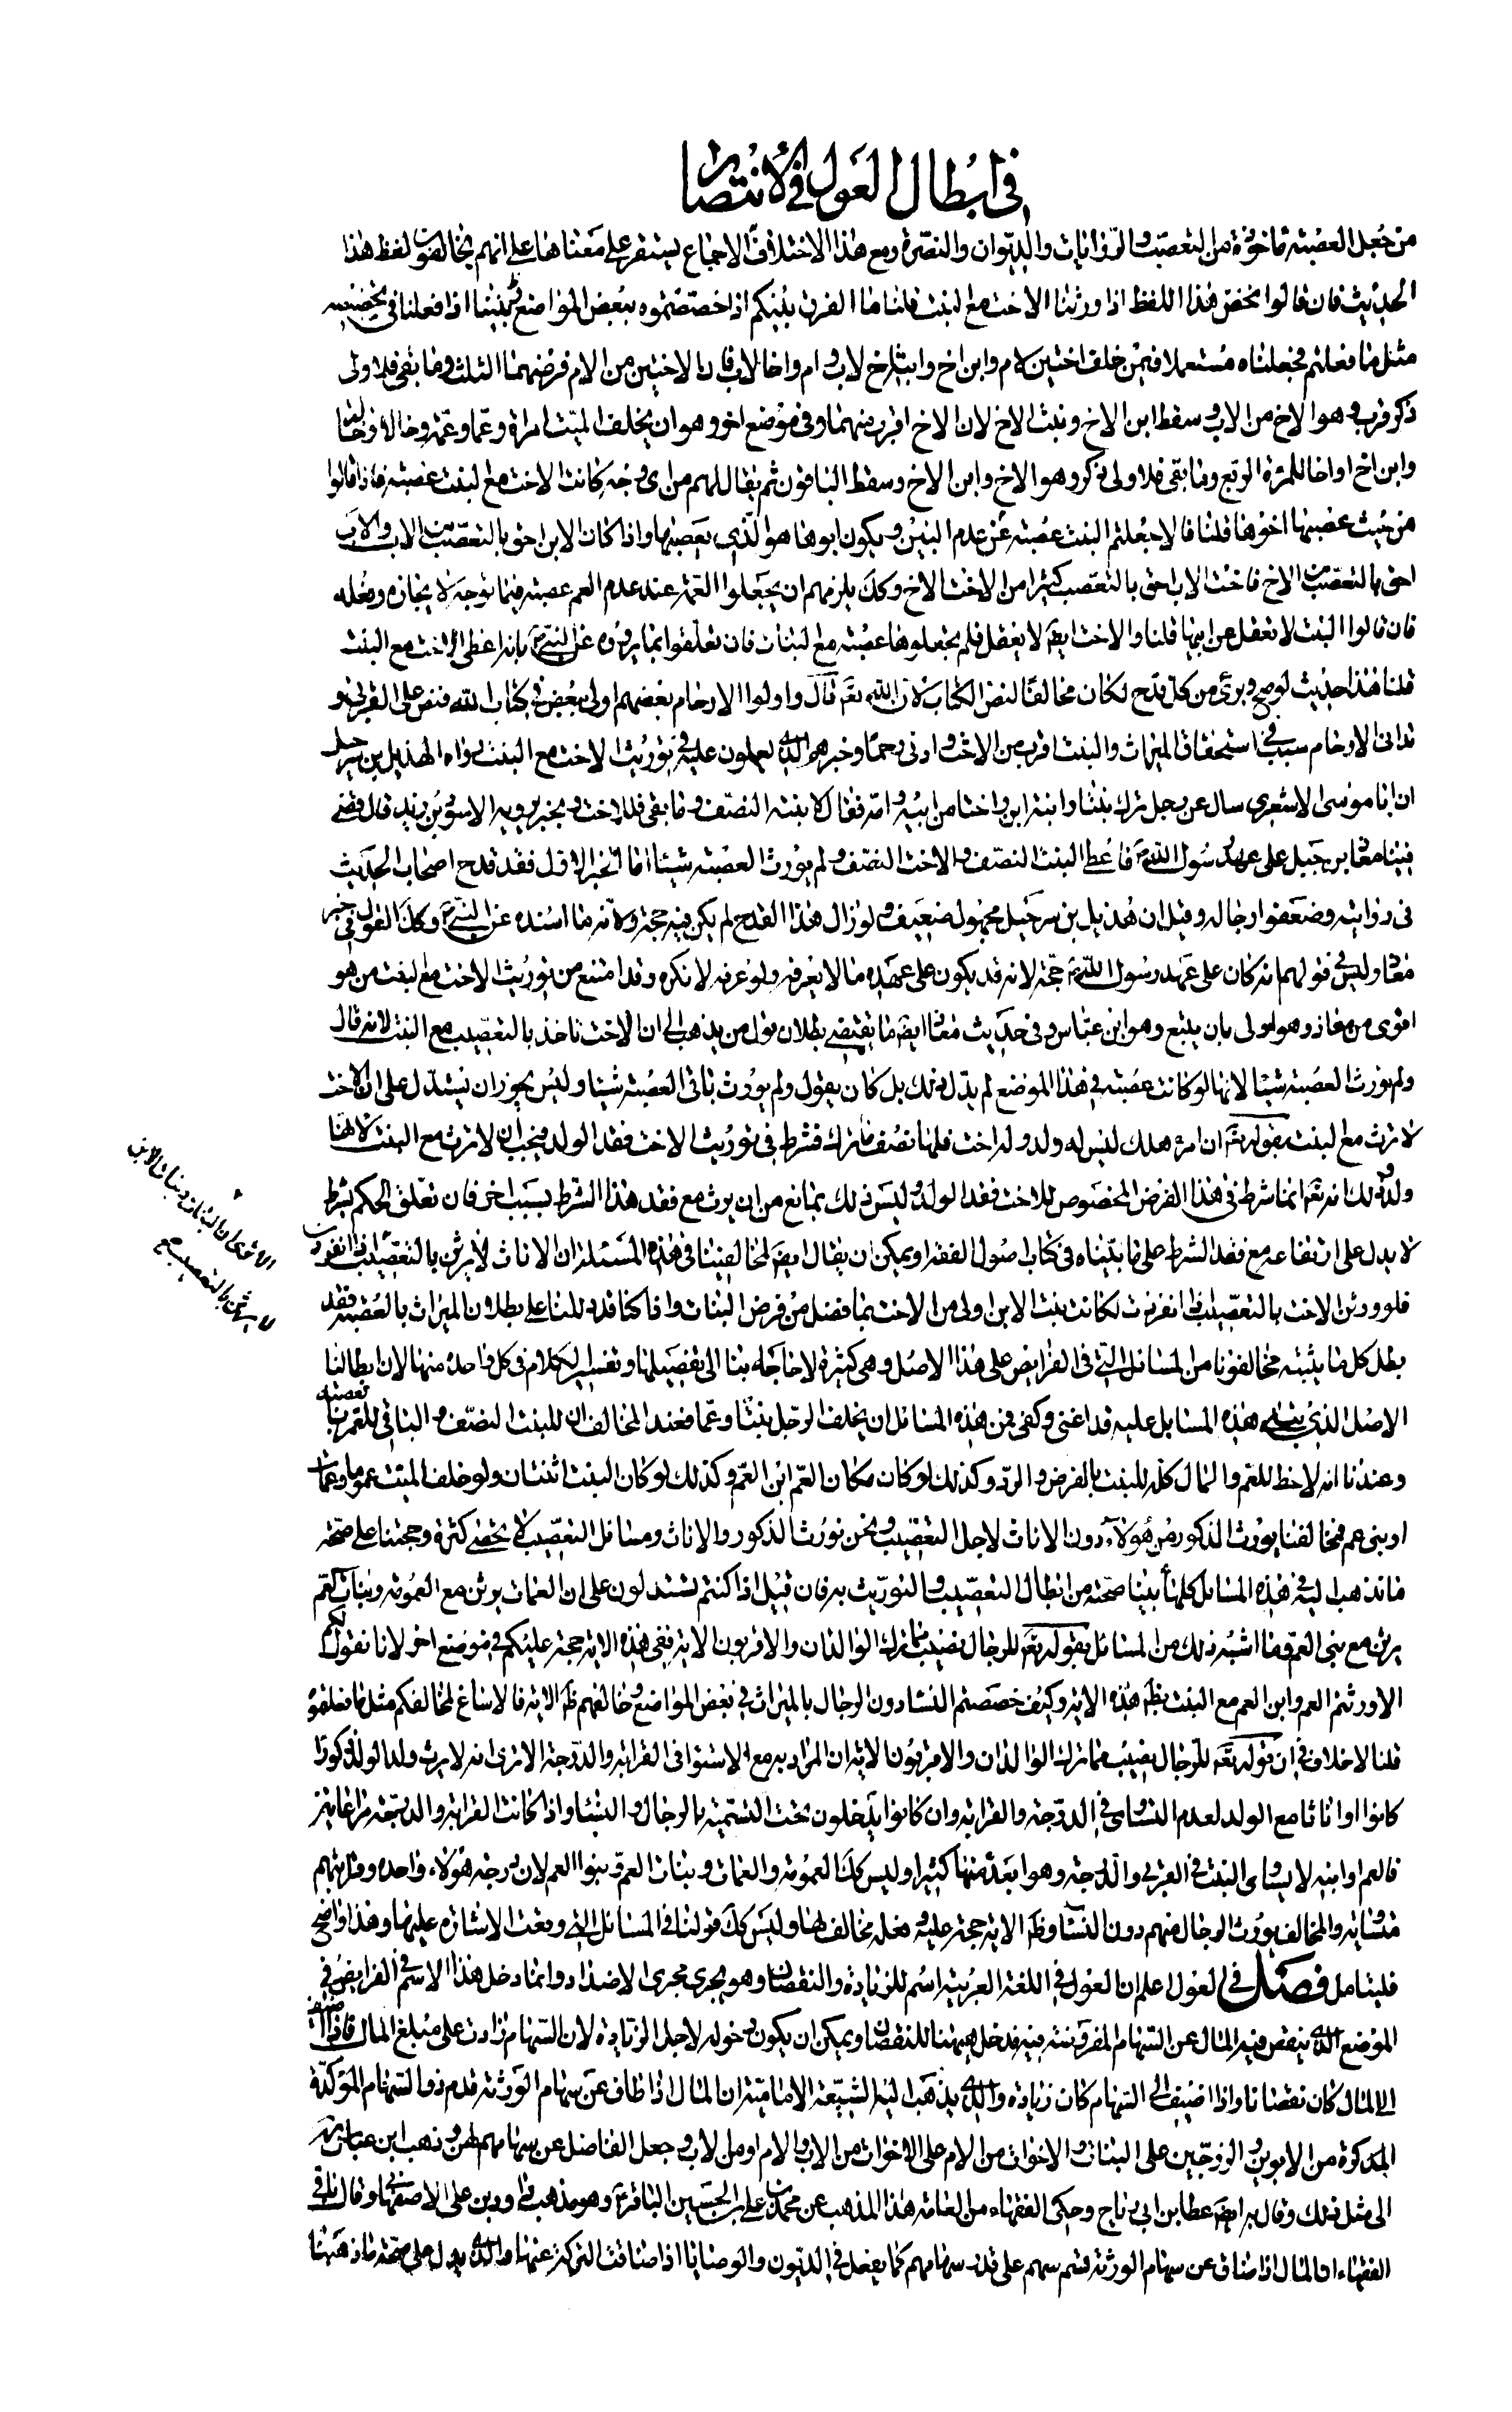 في ابطال العول في الانتصار
من جعل العصبة ماخوذة من التعصب والروايات والديوان والنصرة ومع هذا الاختلاف لا اجماع يستقر على معناها على انهم يخالفون لفظ هذا
الحديث فان قالوا نخص هذا اللفظ اذا ورثنا الاخت مع البنت قلنا ما الفرق بينكم اذا خصصتموه ببعض المواضع وبيننا اذا فعلنا في تخصيصه
مثل ما فعلتم فجعلناه مستعملا فيمن خلف اختين لام وابن اخ وابنة اخ لاب وام واخا لاب فان الاختين من الام فرضهما الثلث وما بقى فلاولى
ذكر قرب وهو الاخ من الاب وسقط ابن الاخ وبنت الاخ لان الاخ اقرب منهما وفى موضع اخر وهو ان يخلف الميت امراة وعما وعمة وخالا وخالة
وابن اخ او اخا للمرئة الربع وما بقى فلاولى ذكر وهو الاخ وابن الاخ وسقط الباقون ثم يقال لهم من اى وجه كانت الاخت مع البنت عصبة فاذا قالوا
من حيث عصبها اخوها قلنا فالا جعلتم البنت عصبة عند عدم البنين ويكون ابوها هو الذى يعصبها واذا كان الابن احق بالتعصيب من الاب والاب
احق بالتعصيب من الاخ فاخت الابن احق بالتعصب كثيرا من الاخت الاخ وكك يلزمهم ان يجعلوا العمة عند عدم العم عصبة فيما توجه لانجازه وفعله
فان قالوا البنت لا تعقل عن ابيها قلنا والاخت ايضا لا تعقل فلم تجعلوها عصبة مع البنات فان تعلقوا بما يروونه عن النبى ص بانه اعطى الاخت مع البنت
قلنا هذا حديث لو صح وبرئ من كل قدح لكان مخالفا لنص الكتاب لان الله تعا قال واولوا الارحام بعضهم اولى ببعض في كتاب الله فنص على القربى و
تدانى الارحام سبب في استحقاق الميراث والبنت اقرب من الاخت وادنى رحما وخبرهم الذى يعولون عليه في توريث الاخت مع البنت رواه الهذيل بن شرحبيل
ان ابا موسى الاشعرى سال عن رجل ترك بنتا وابنة ابن واختا من ابيه وامه فقال لابنته النصف وما بقى فللاخت وبخبر يرويه الاسود بن يزيد قال قضى
فينا معاذ بن جبل على عهد رسول الله ص فاعطى البنت النصف والاخت النصف ولم يورث العصبة شيئا اما الخبر الاول فقد قدح اصحاب الحديث
فى روايته وضعفوا رجاله وقيل ان هذيل بن شرحبيل مجهول ضعيف ولو زال هذا القدح لم يكن فيه حجة لانه ما اسنده عن النبى ص وكك القول في خبر
معاذ وليس في قولهم انه كان على عهد رسول الله ص حجة لانه قد يكون على عهده ما لا يعرفه ولو عرفه لانكره وقد امتنع من توريث الاخت مع البنت من هو
اقوى من معاذ وهو اولى بان يتبع وهو ابن عباس وفى حديث معاذ ايضا ما يقتضى بطلان قول من يذهب الى ان الاخت تاخذ بالتعصيب مع البنت لانه قال
ولم يورث العصبة شيئا لانها لو كانت عصبة في هذا الموضع لم يقل ذلك بل كان يقول ولم يورث باقى العصبة شيئا وليس يجوز ان يستدل على ان الاخت
لا ترث مع البنت بقوله تعا ان امرء هلك ليس له ولد وله اخت فلها نصف ما ترك فشرط فى توريث الاخت فقد الولد فيجب ان لا ترث مع البنت لانها
ولد وذلك انه تعا انما شرط فى هذا الفرض المخصوص للاخت فقد الولد وليس ذلك بمانع من ان يرث مع فقد هذا الشرط بسبب اخر فان تعلق الحكم بشرط
لا يدل على ارتفاعه مع فقد الشرط على ما بيناه فى كتاب اصول الفقه ويمكن ان يقال ايضا لمخالفينا في هذه المسئلة ان الاناث لا يرثن بالتعصيب اذا انفردن
فلو ورثن الاخت بالتعصيب اذا انفردت لكانت بنت الابن اولى من الاخت بما فضل من فرض البنات واذا كنا قد دللنا على بطلان الميراث بالعصبة فقد
بطل كل ما يثبته مخالفونا من المسائل التى فى الفرائض على هذا الاصل وهى كثيرة لا حاجة بنا الى تفصيلها وتفسير الكلام فى كل واحدة منها لان ابطالنا
الاصل الذى بنيت هذه المسائل عليه قد اغنى وكفى فمن هذه المسائل ان يخلف الرجل بنتا وعما فعند المخالف ان للبنت النصف والباقى للعم بالعصبة
وعندنا انه لا حظ للعم والمال كله للبنت بالفرض والرد وكذلك لو كان مكان العم ابن العم وكذلك لو كان البنت اثنتان ولو خلف الميت عموما وعمات
او بنى عم فمخالفنا يورث الذكور من هؤلاء دون الاناث لاجل التعصيب ونحن نورث الذكور والاناث ومسائل التعصيب لا تحصى كثرة وحجتنا على صحة
ما نذهب اليه في هذه المسائل كلها ما بينا صحته من ابطال التعصيب والتوريث به فان قيل اذا كنتم تستدلون على ان العمات يرثن مع العمومة وبنات العم
يرثن مع بنى العم وما اشبه ذلك من المسائل بقوله تعا للرجال نصيب مما ترك الوالدان والاقربون الاية ففى هذه الاية حجة عليكم في موضع اخر لانا نقول لكم
الا ورثتم العم وابن العم مع البنت بظ هذه الاية وكيف خصصتم النساء دون الرجال بالميراث في بعض المواضع وخالفتم ظ الاية فالا ساغ لمخالفكم مثل ما فعلتموه
قلنا لا خلاف في ان قوله تعا للرجال نصيب مما ترك الوالدان والاقربون الاية ان المراد به مع الاستواء فى القرابة والدرجة الا ترى انه لا يرث ولد الولد ذكورا
كانوا او اناثا مع الولد لعدم التساوى في الدرجة والقرابة وان كانوا يدخلون تحت التسمية بالرجال والنساء واذا كانت القرابة والدرجة مراعاتين
فالعم او ابنه لا يساوى البنت في القربى والدرجة وهو ابعد منها كثيرا وليس كك العمومة والعمات وبنات العم وبنوا العم لان درجة هؤلاء واحدة وقرابتهم
متساوية والمخالف يورث الرجال منهم دون النساء وظ الاية حجة عليه وفعله مخالف لها وليس كك قولنا فى المسائل التى وقعت الاشارة عليها وهذا واضح
فليتامل فصل في العول اعلم ان العول في اللغة العربية اسم للزيادة والنقصان وهو يجرى مجرى الاضداد وانما دخل هذا الاسم في الفرايض في
الموضع الذى ينقص فيه المال عن السهام المفروضة فيه فدخل هيهنا للنقصان ويمكن ان يكون دخوله لاجل الزيادة لان السهام زادت على مبلغ المال فاذا اضيف
الى المال كان نقصانا واذا اضيف الى السهام كان زيادة والذى يذهب اليه الشيعة الامامية ان المال اذا ضاق عن سهام الورثة قدم ذوا السهام المؤكدة
المذكورة من الابوين والزوجين على البنات والاخوات من الام على الاخوات من الاب والام او من الاب وجعل الفاضل عن سهامهم لهن وذهب ابن عباس ره
الى مثل ذلك وقال به ايضا عطا بن ابى رباح وحكى الفقهاء من العامة هذا المذهب عن محمد بن على بن الحسين الباقر ع وهو مذهب داود بن على الاصفهانى وقال باقى
الفقهاء ان المال اذا ضاق عن سهام الورثة قسم بينهم على قدر سهامهم كما يفعل في الديون والوصايا اذا ضاقت التركة عنها والذى يدل على صحة ما ذهبنا
الا ترى ان البنات وبنات الابن
لا يرثن بالتعصيب مع